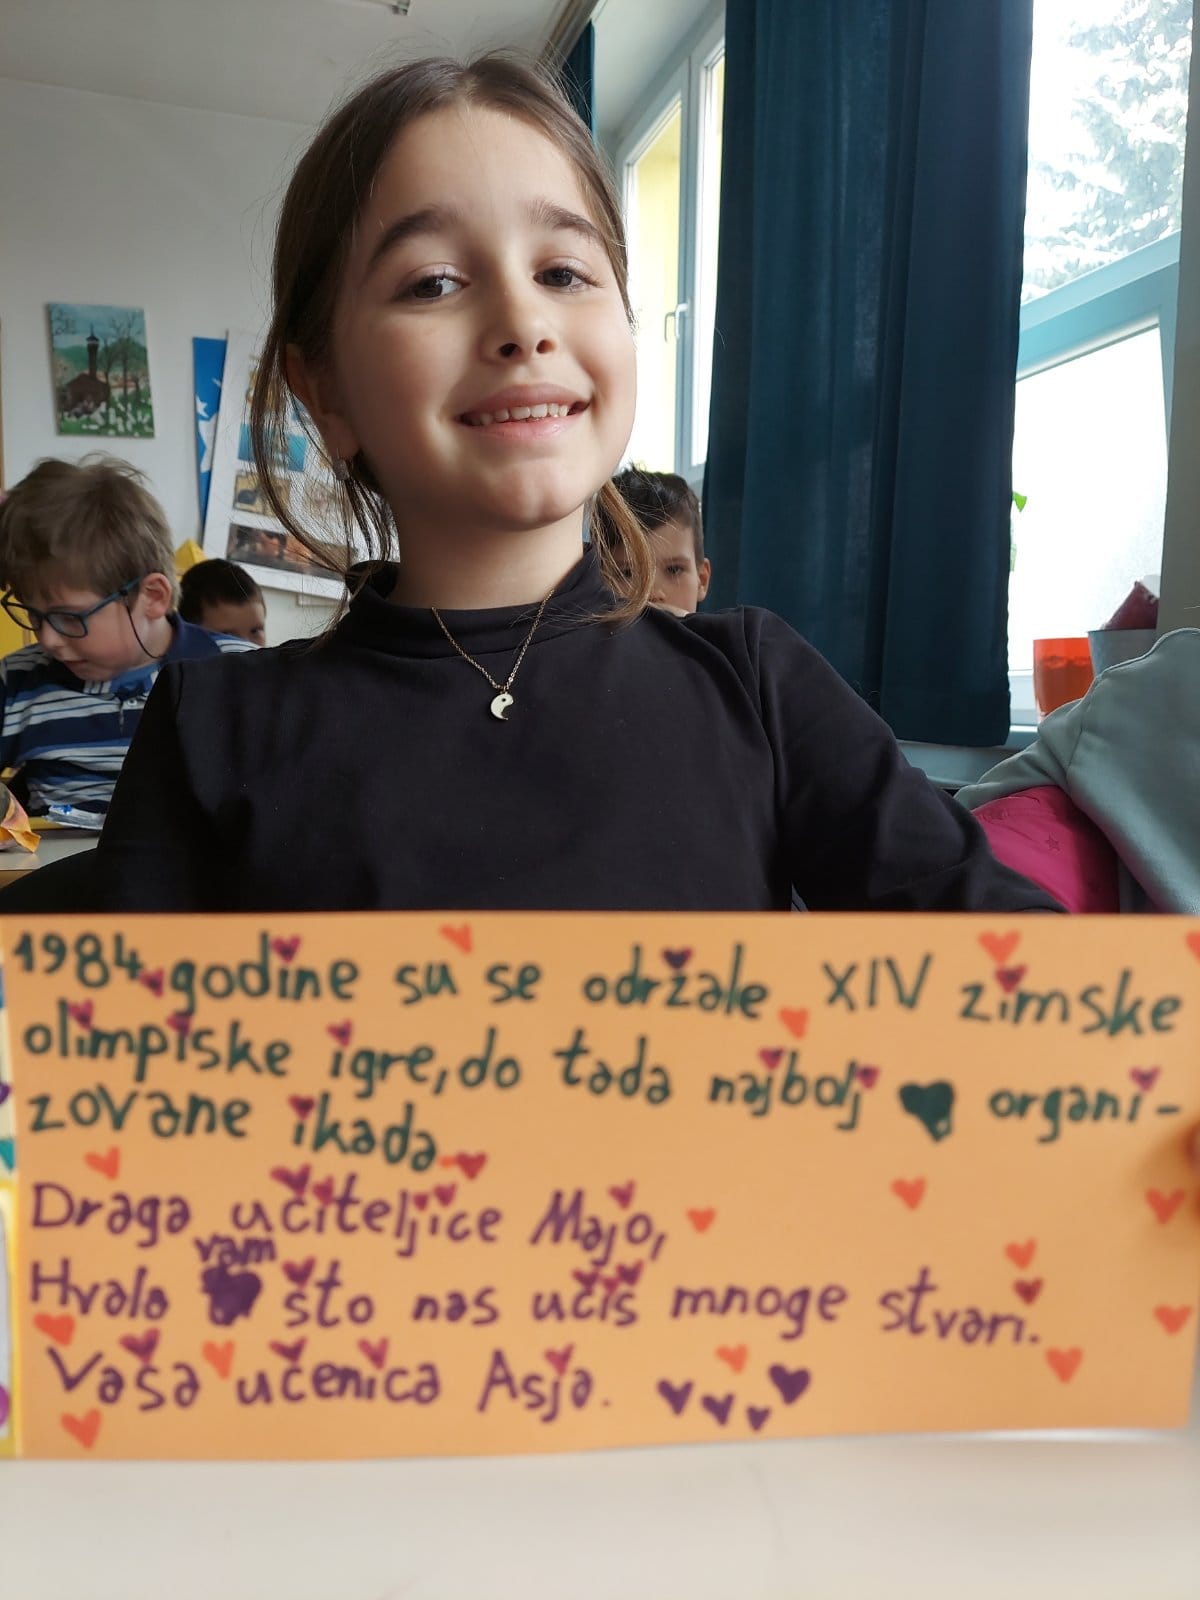 1984. godine su se održale XIV zimske
olimpiske igre, do tada najbolj organi-
zovane ikada.
Draga učiteljice Majo,
vam
Hvala što nas učiš mnoge stvari.
Vaša učenica Asja.